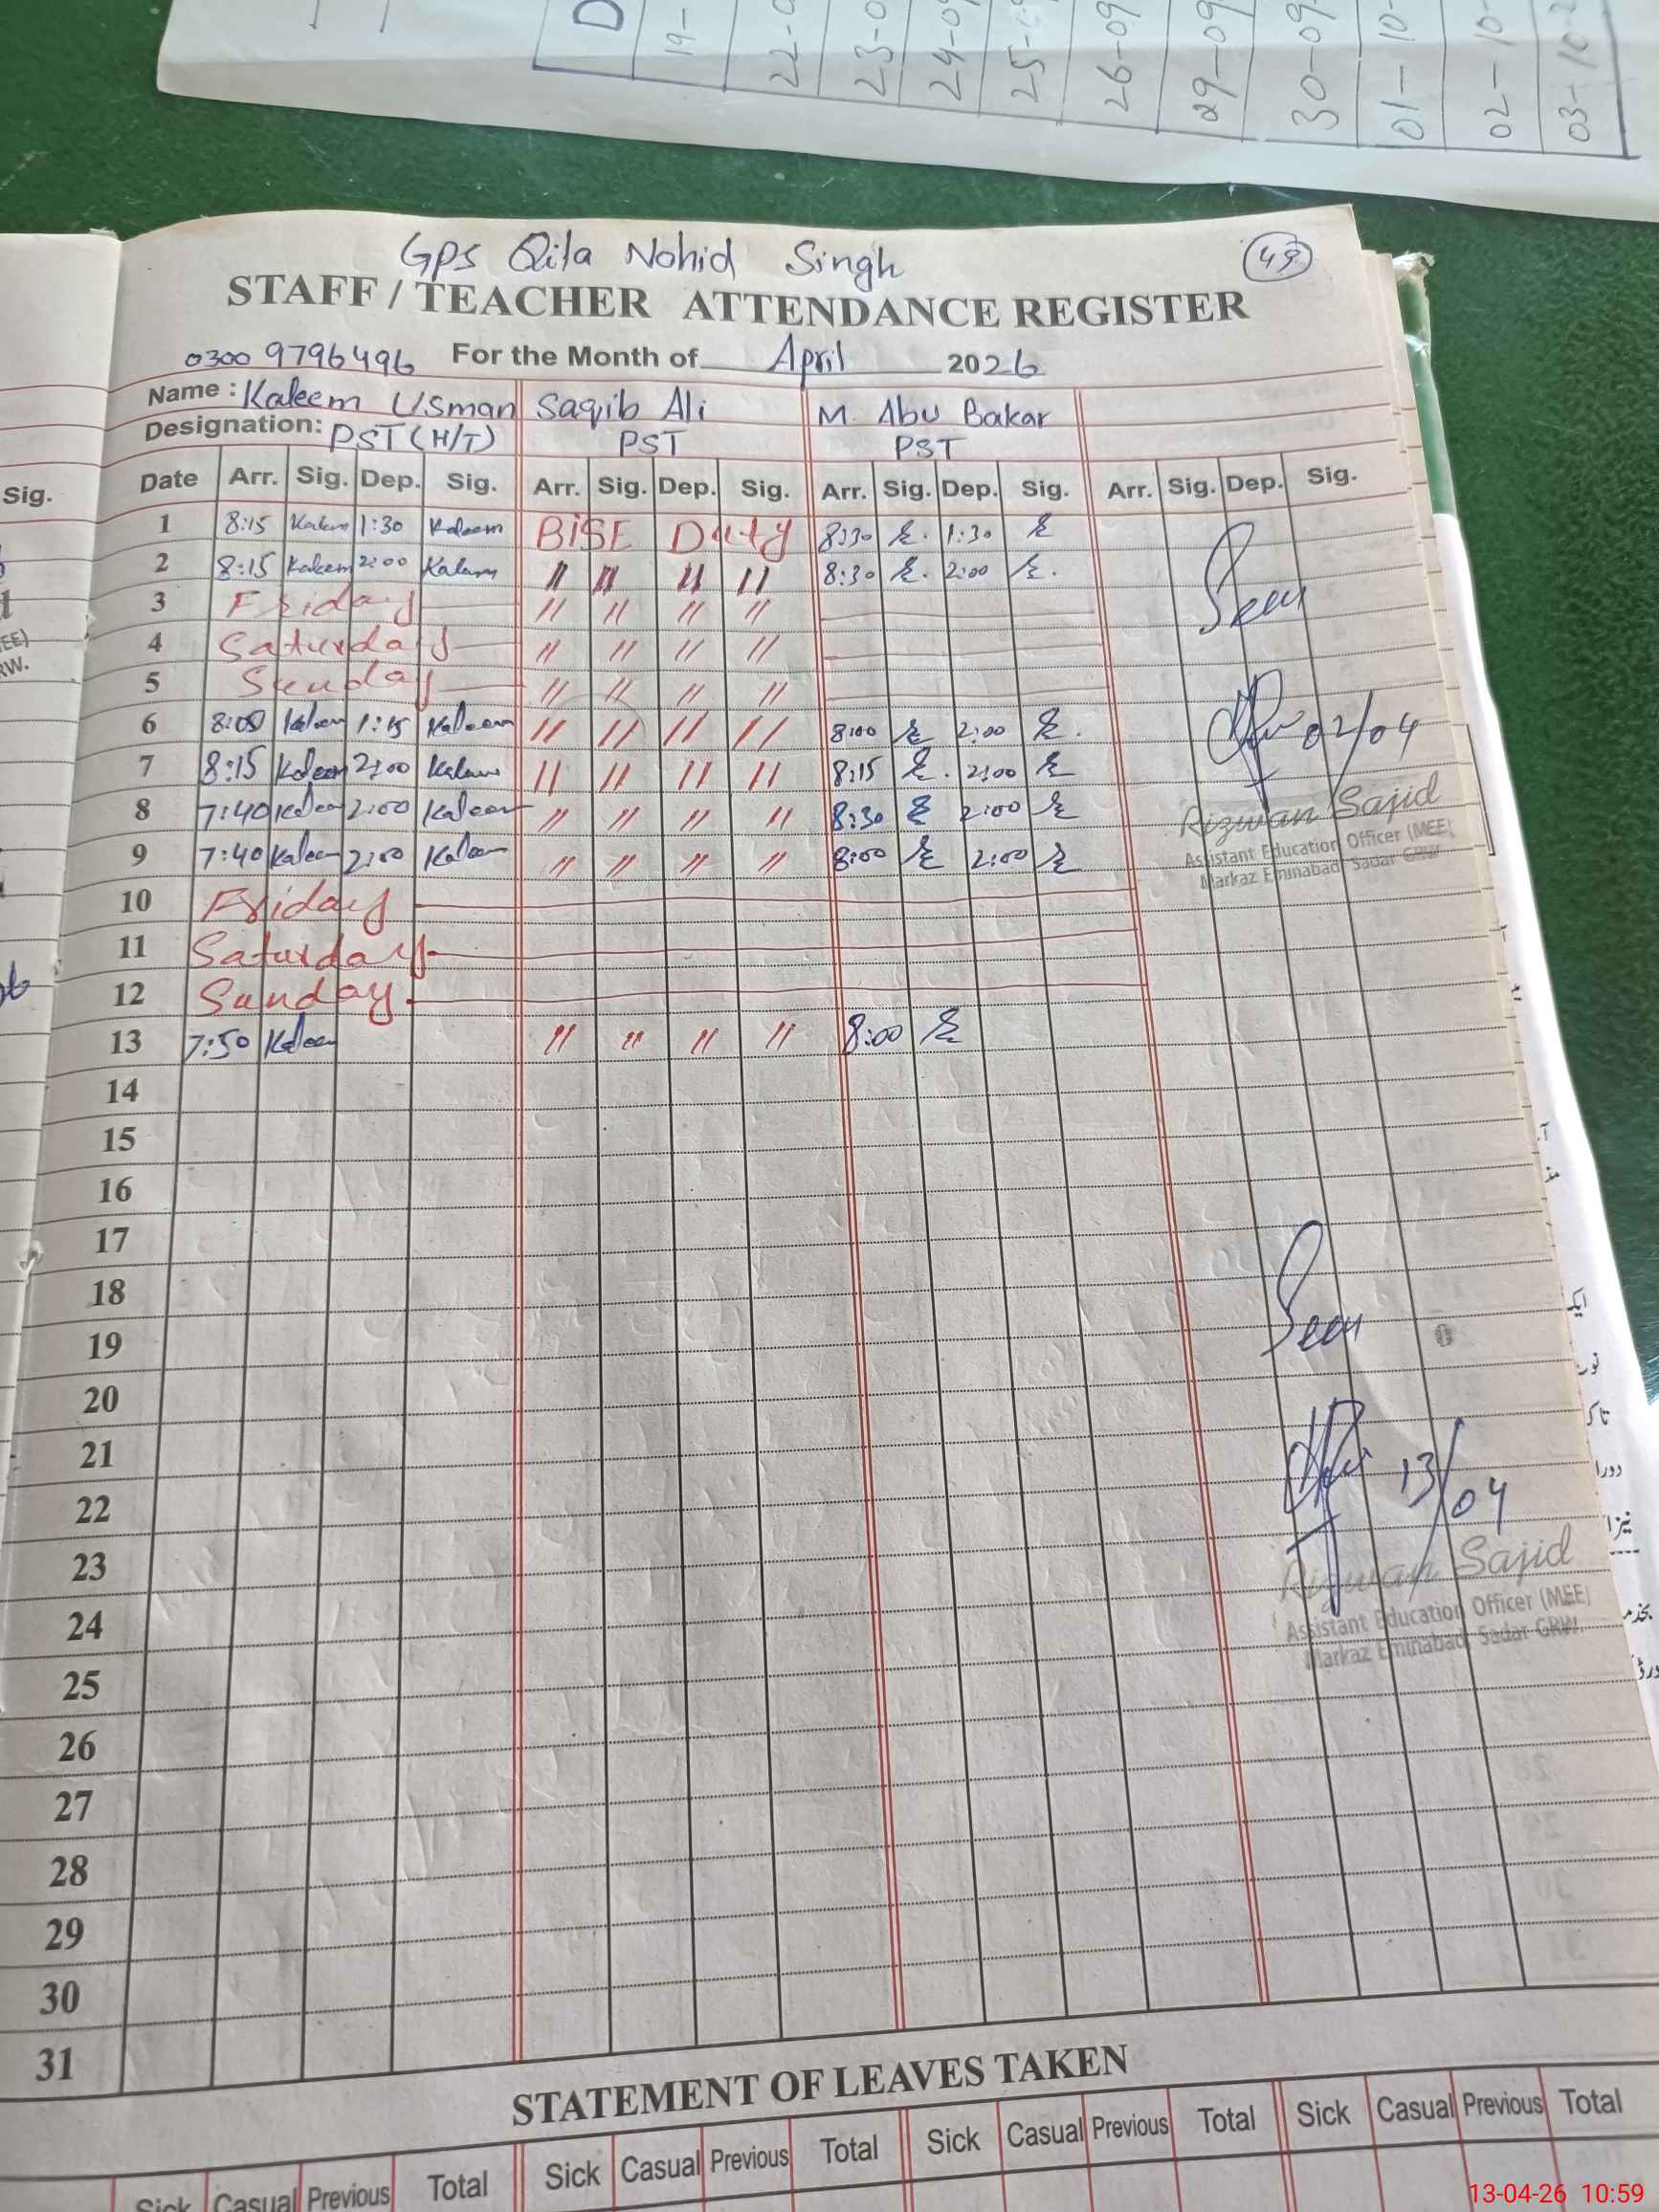 D
19-
22-0
23-0
24-09
25-09
26-09
29-09
30-09-
01-10-
02-10-
03-10-2
GPS Qila Nohid Singh
49
STAFF / TEACHER ATTENDANCE REGISTER
0300 9796496 For the Month of April 2026
Name : Kaleem Usman Saqib Ali M. Abu Bakar
Designation: PST (H/T) PST PST
Sig.
Date Arr. Sig. Dep. Sig. Arr. Sig. Dep. Sig. Arr. Sig. Dep. Sig. Arr. Sig. Dep. Sig.
1 8:15 Kaleem 1:30 Kaleem BISE Duty 8:30 1:30
2 8:15 Kaleem 2:00 Kaleem " " " " 8:30 2:00
3 Friday " " " "
Seen
EE)
4 Saturday " " " "
RW.
5 Sunday " " " "
6 8:00 Kaleem 1:15 Kaleem " " " " 8:00 2:00
02/04
7 8:15 Kaleem 2:00 Kaleem " " " " 8:15 2:00
8 7:40 Kaleem 2:00 Kaleem " " " " 8:30 2:00
Rizwan Sajid
Assistant Education Officer (MEE)
Markaz Eminabad Sadar GRW
9 7:40 Kaleem 2:00 Kaleem " " " " 8:00 2:00
10 Friday
11 Saturday
12 Sunday
13 7:50 Kaleem " " " " 8:00
14
15
16
17
18
19
Seen
20
21
13/04
22
23
Rizwan Sajid
24
Assistant Education Officer (MEE)
Markaz Eminabad Sadar GRW.
25
26
27
28
29
30
31
STATEMENT OF LEAVES TAKEN
Sick Casual Previous Total Sick Casual Previous Total Sick Casual Previous Total Sick Casual Previous Total
13-04-26 10:59